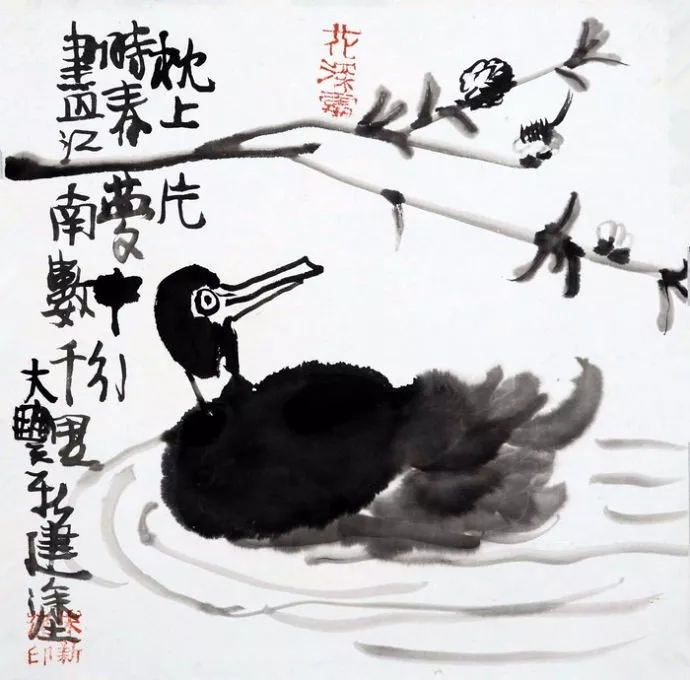 枕上片
時春夢中行
盡江南數千里
大豐新建塗
花深處
朱新建印